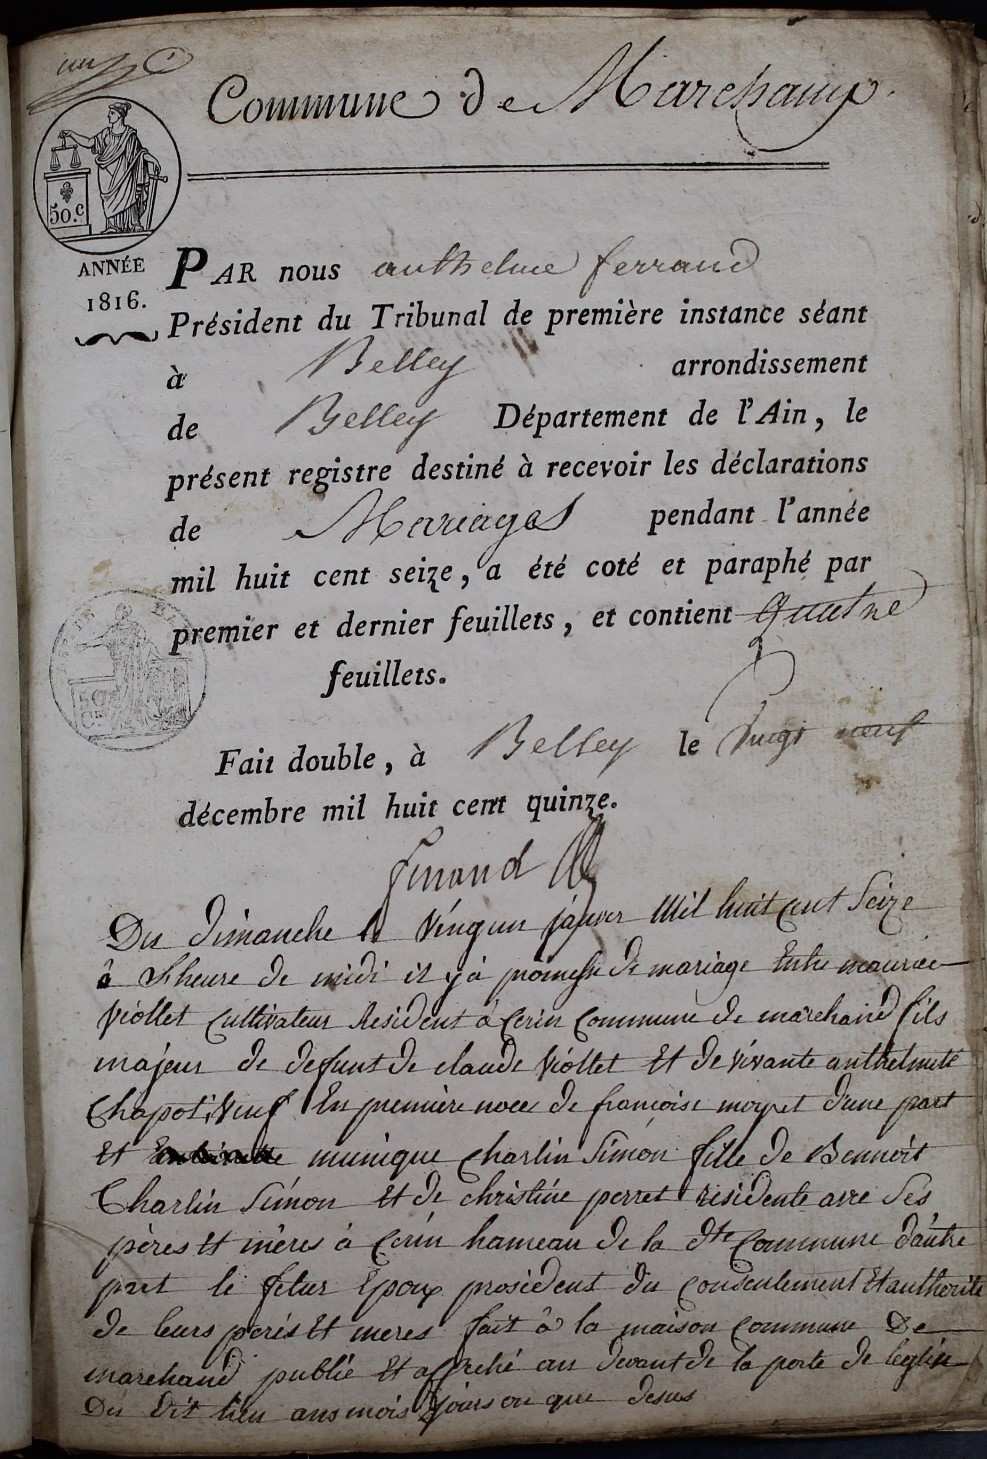 Commune de Marchamp.
50.c
ANNÉE
1816.
PAR nous anthelme ferrand
Président du Tribunal de première instance séant
à Belley arrondissement
de Belley Département de l'Ain, le
présent registre destiné à recevoir les déclarations
de Mariages pendant l'année
mil huit cent seize, a été coté et paraphé par
premier et dernier feuillets, et contient quatre
feuillets.
Fait double, à Belley le vingt neuf
décembre mil huit cent quinze.
ferrand
Du dimanche le véng un janver Mil huit cent Seize
à l'heure de midi il y à promesse de mariage Entre maurice
Viollet cultivateur Résident à Cerin commune de marchand fils
majeur de defunt de claude Viollet Et de vivante anthelmete
Chapot, Veuf En première noces de francoise moyret d'une part
Et munique Charlin Simon fille de Bennoit
Charlin Simon Et de christine perret residente avec Ses
pères Et mères à Cerin hameau de la dte Commune d'autre
part le futur Epoux prosident du consentement Et authorité
de leurs peres Et meres fait à la maison commune De
marchand publié Et affiché au devant de la porte de l'eglise
Du dit lieu ans mois Jours que desus